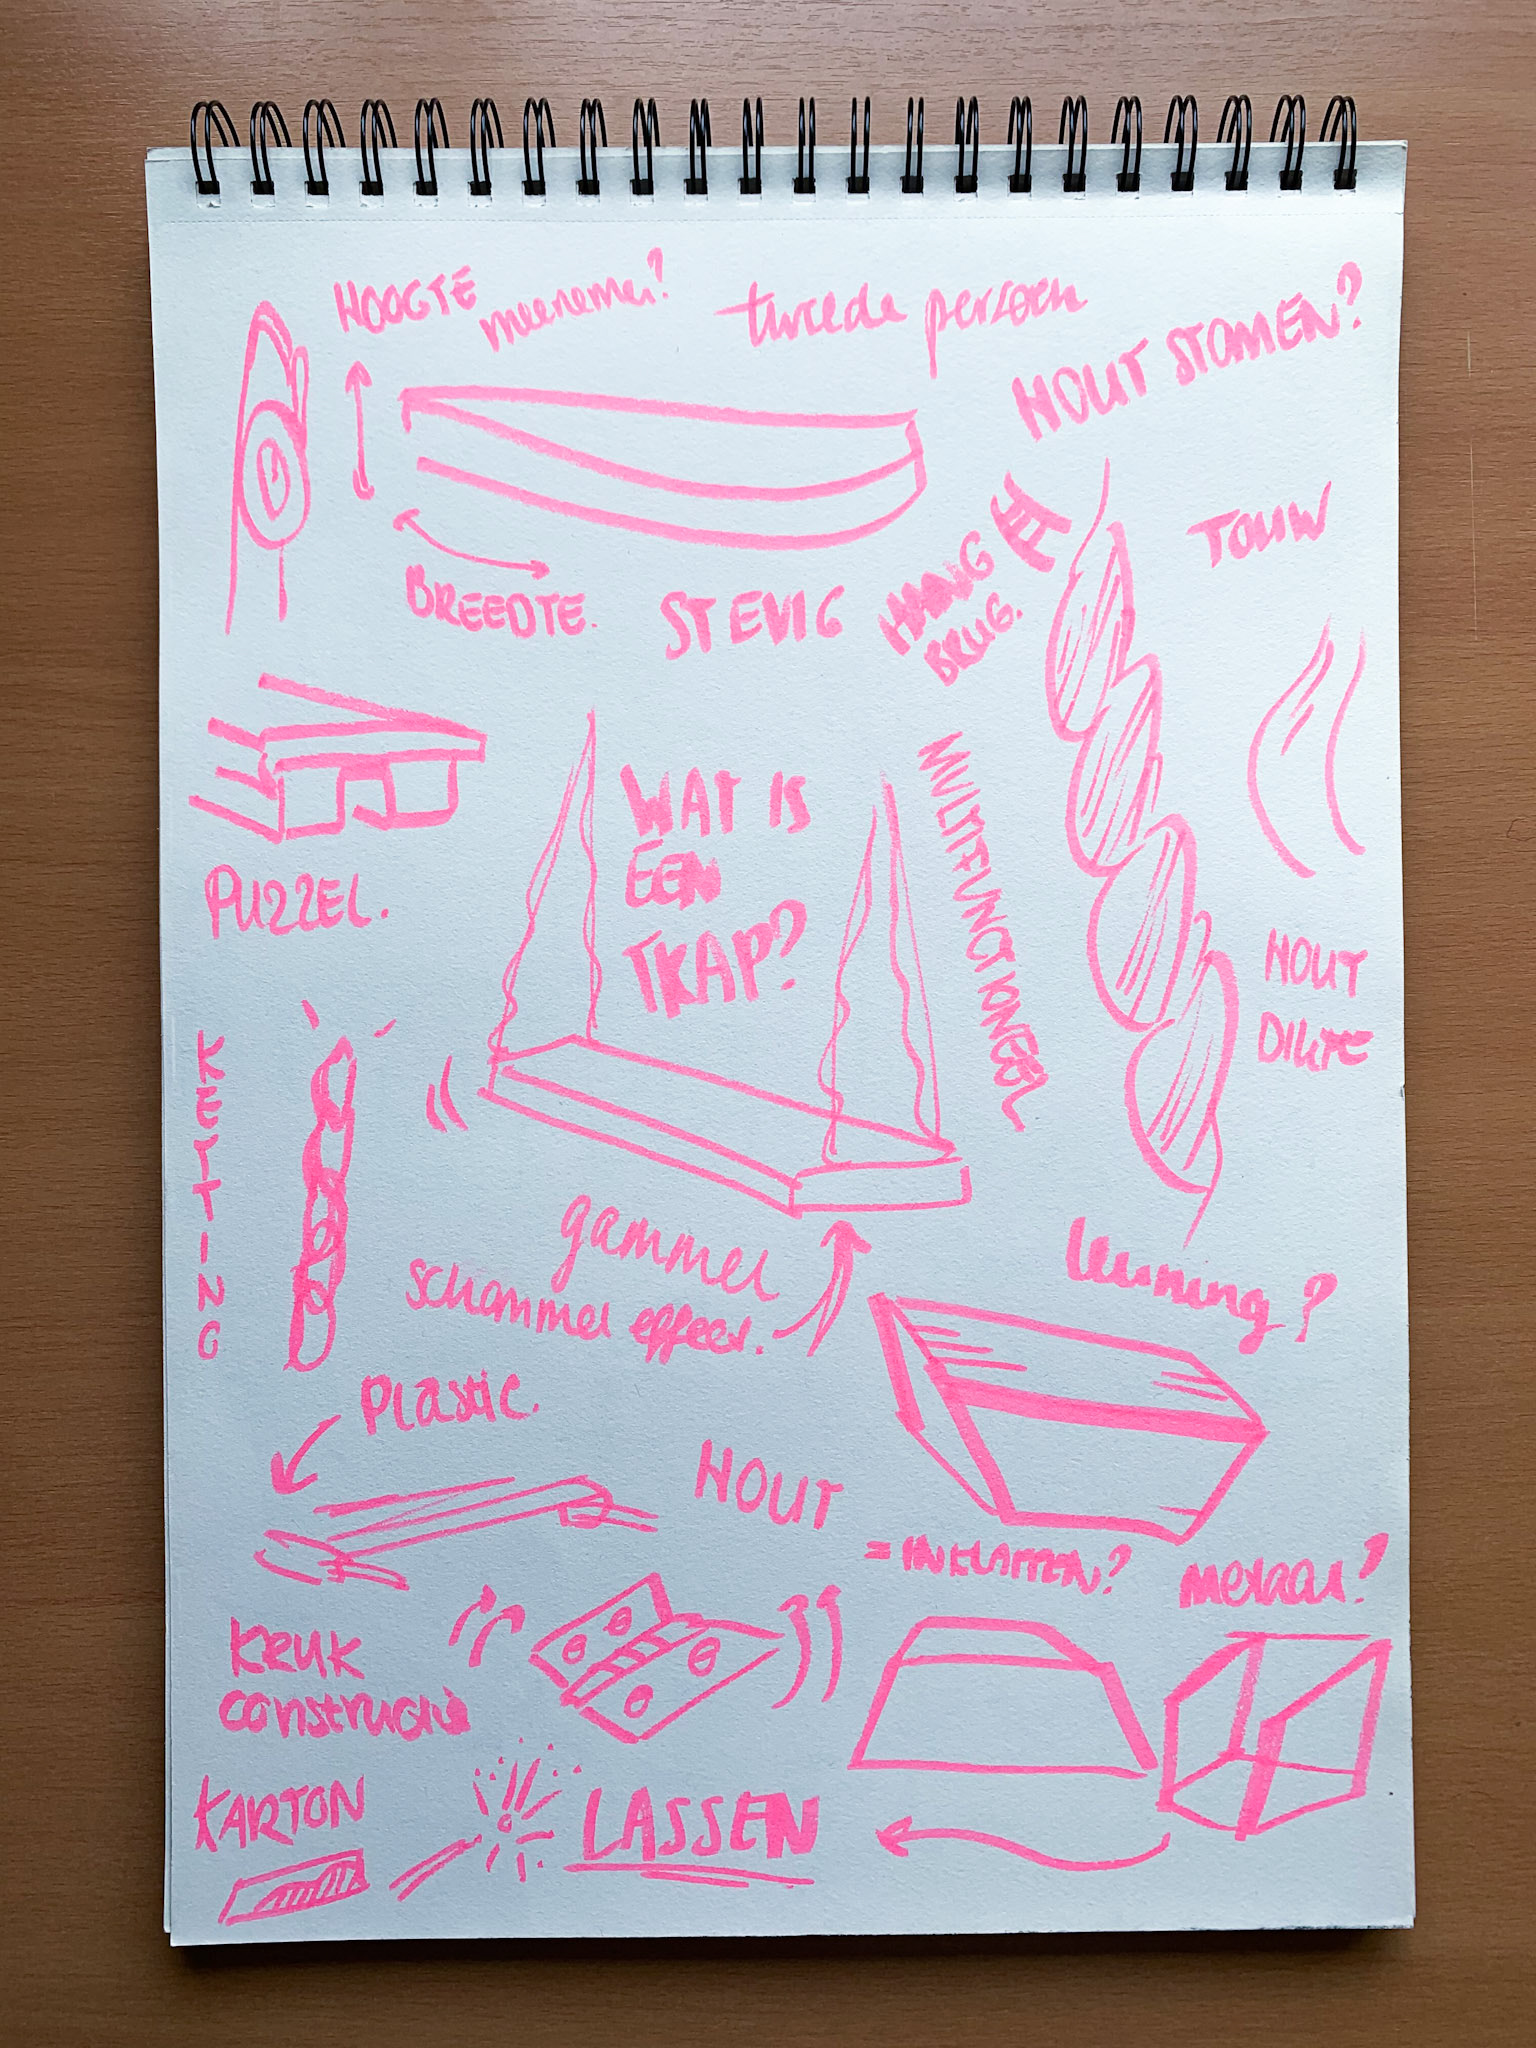 HOOGTE
meenemen?
tweede persoon
HOUT STOMEN?
BREEDTE.
STEVIG
HANG
BRUG.
TOUW
PUZZEL.
WAT IS
EEN
TRAP?
MULTIFUNCTIONEEL
HOUT
DIKTE
KETTING
gammel
schommel effect.
leuning?
Plastic.
HOUT
= INKLAPPEN?
metaal?
KRUK
constructie
KARTON
LASSEN